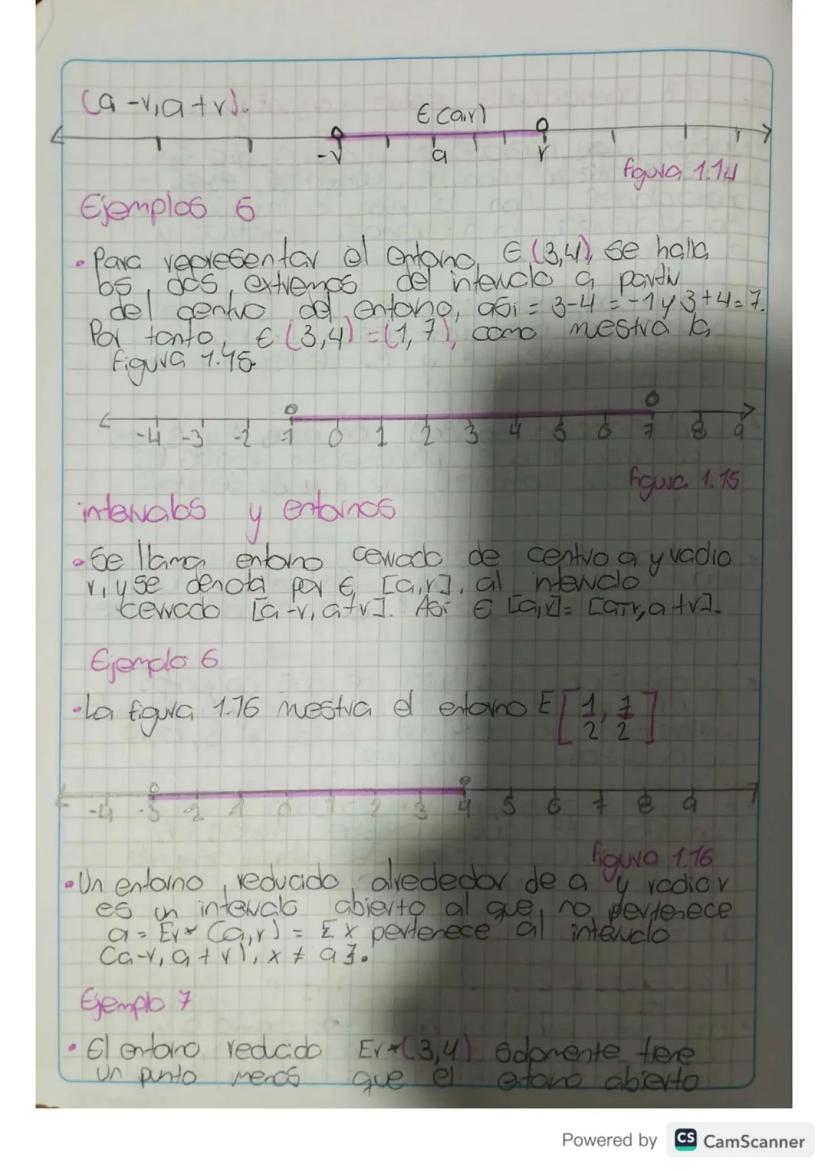 (a-r,a+r).
E(a,r)
-r a r
figura 1.14
Ejemplos 6
• Para representar el entorno, E (3,4), se halla,
los, dos, extremos del intervalo a partir
del centro del entorno, asi = 3-4 = -1 y 3+4=7.
Por tanto, E (3,4) = (1,7), como mestra la
figura 1.15
-4 -3 -2 -1 0 1 2 3 4 5 6 7 8 9
figura 1.15
intervalos y entornos
• Se llama entorno cerrado de centro a y radio
r, y se denota por E, [a,r], al intervalo
cerrado [a-r, a+r]. Asi E [a,r]= [a-r, a+r].
Ejemplo 6
• La figura 1.16 mestra el entorno E [1/2, 7/2]
-4 -3 -2 -1 0 1 2 3 4 5 6 7 8 9
figura 1.16
• Un entorno, reducido, alrededor de a y radio r
es un intervalo abierto al que no pertenece
a = Er* (a,r) = { x pertenece al intervalo
(a-r, a+r), x ≠ a }.
Ejemplo 7
• El entorno reducido Er*(3,4) solamente tiene
un punto menos que el entorno abierto
Powered by CS CamScanner